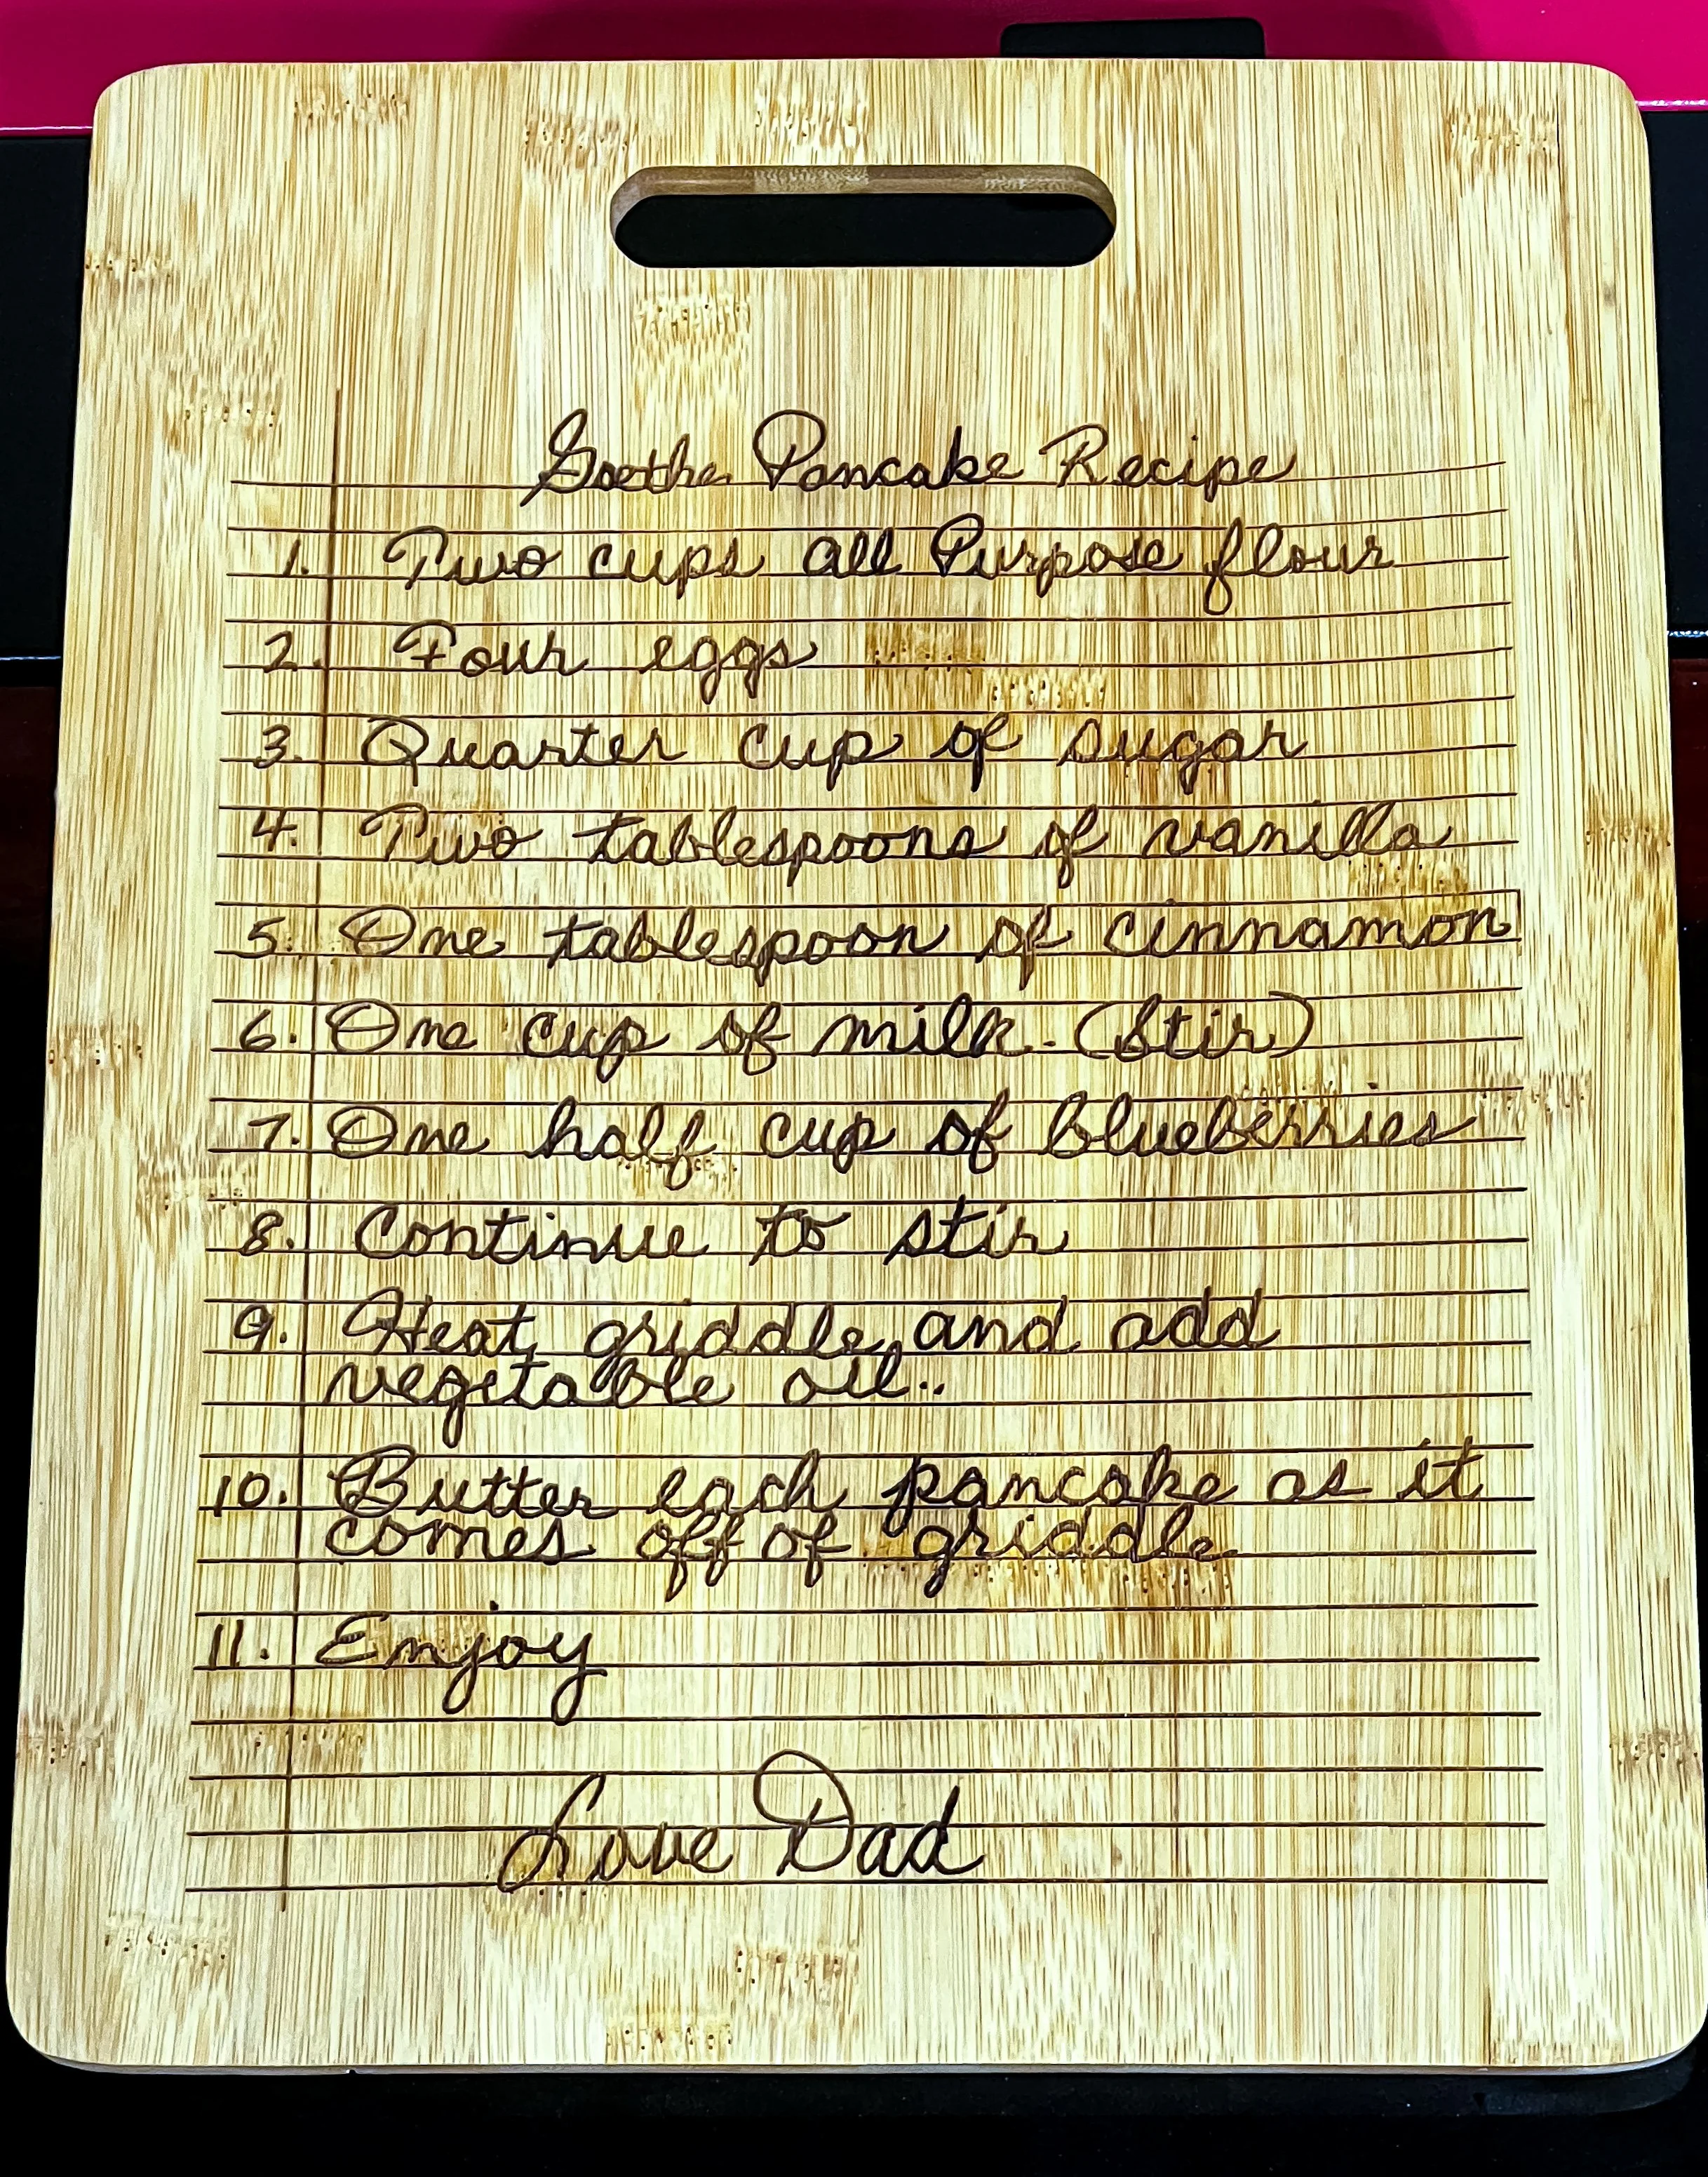 Goethe Pancake Recipe
1. Two cups all Purpose flour
2. Four eggs
3. Quarter cup of sugar
4. Two tablespoons of vanilla
5. One tablespoon of cinnamon
6. One cup of milk. (Stir)
7. One half cup of blueberries
8. Continue to stir
9. Heat griddle and add
vegetable oil..
10. Butter each pancake as it
comes off of griddle
11. Enjoy
Love Dad